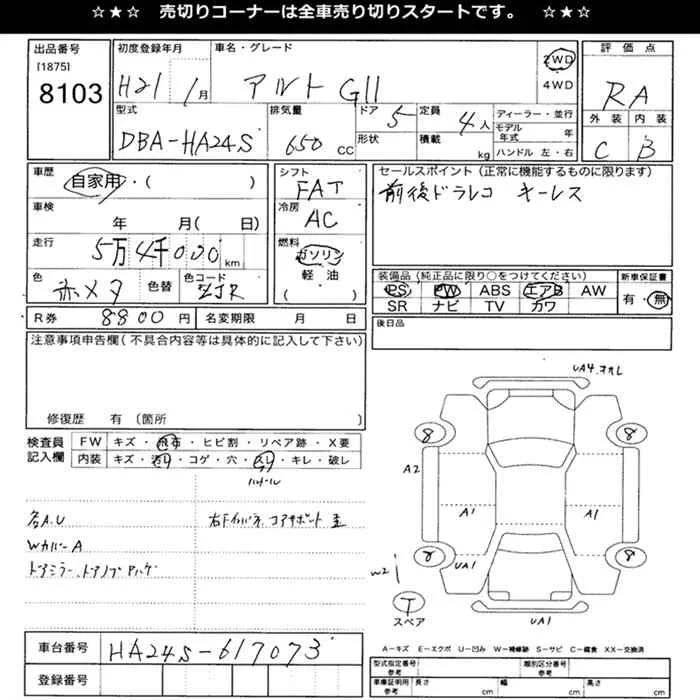 ☆★☆ 売切りコーナーは全車売り切りスタートです。 ☆★☆
出品番号 [1875] 8103
初度登録年月 H21 年 1月
車名・グレード アルト GII
2WD
4WD
評価点 RA
外装 内装
C B
型式 DBA-HA24S
排気量 650 CC
ドア 5
形状
定員 4人
積載 kg
ディーラー・並行
モデル年式 年
ハンドル 左・右
車歴 自家用・( )
車検 年 月( 日)
走行 5万4千000km
色 赤メタ 色替 色コード ZJR
シフト FAT
冷房 AC
燃料 ガソリン
軽油
( )
セールスポイント(正常に機能するものに限ります)
前後ドラレコ キーレス
装備品(純正品に限り○をつけてください)
PS PW ABS エアB AW
SR ナビ TV カワ
新車保証書
有・無
R券 8800円 名変期限 月 日
後日品
注意事項申告欄(不具合内容等は具体的に記入して下さい)
修復歴 有(箇所 )
検査員記入欄
FW キズ・飛石・ヒビ割・リペア跡・X要
内装 キズ・汚レ・コゲ・穴・スレ・キレ・破レ
ハンドル
各A.U
WカバーA
右Fインパネ、コアサポート 歪
UA4.オオレ
8 8
A2 A1 A1
UA1
8 8
W2
T
スペア
UA1
A-キズ E-エクボ U-凹み W-補修跡 S-サビ C-腐食 XX-交換済
車台番号 HA24S-617073
登録番号
型式指定番号 参考
類別区分番号 参考
車庫証明用 参考
長さ cm
幅 cm
高さ cm